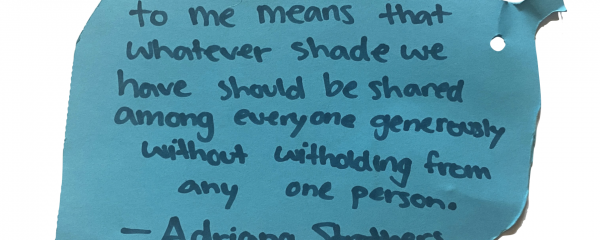 to me means that
whatever shade we
have should be shared
among everyone generously
without witholding from
any one person.
— Adriana